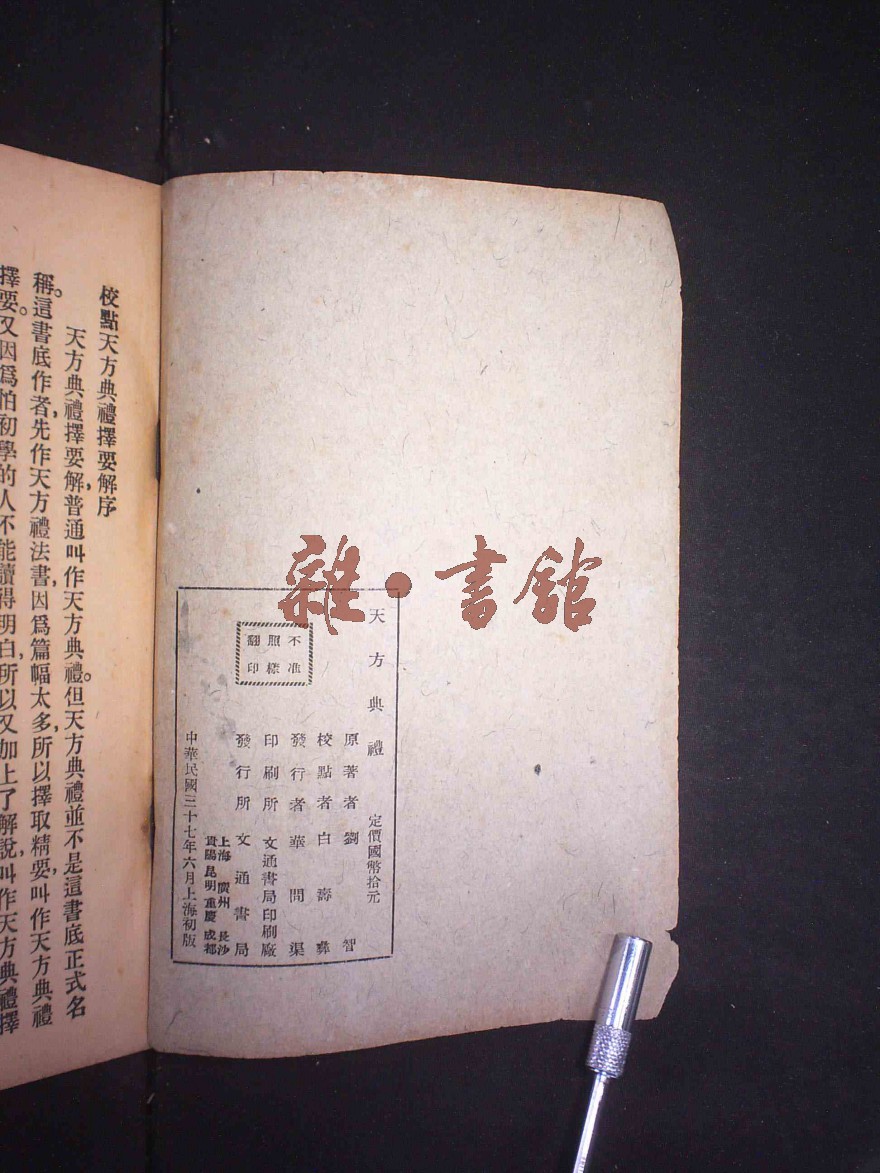 天方典禮 定價國幣拾元
原著者 劉智
校點者 白壽彝
發行者 華問渠
印刷所 文通書局印刷廠
發行所 文通書局
上海 廣州 長沙
貴陽 昆明 重慶 成都
中華民國三十七年六月上海初版
不准
照樣
翻印
雜·書館
校點天方典禮擇要解序
天方典禮擇要解,普通叫作天方典禮。但天方典禮並不是這書底正式名
稱。這書底作者,先作天方禮法書,因爲篇幅太多,所以擇取精要,叫作天方典禮
擇要。又因爲怕初學的人不能讀得明白,所以又加上了解說,叫作天方典禮擇